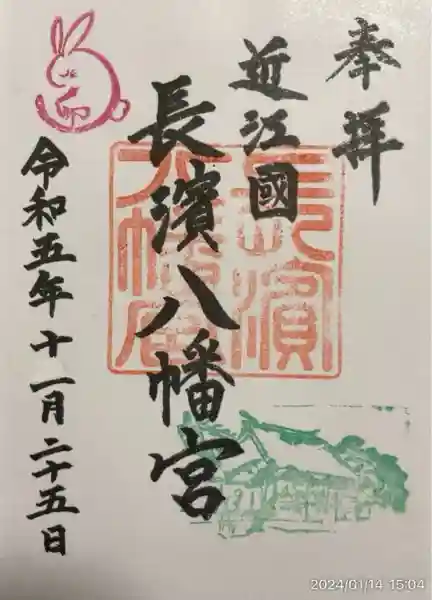 奉拝
近江國
長濱八幡宮
長濱八幡宮
卯
令和五年十一月二十五日
2024/01/14 15:04